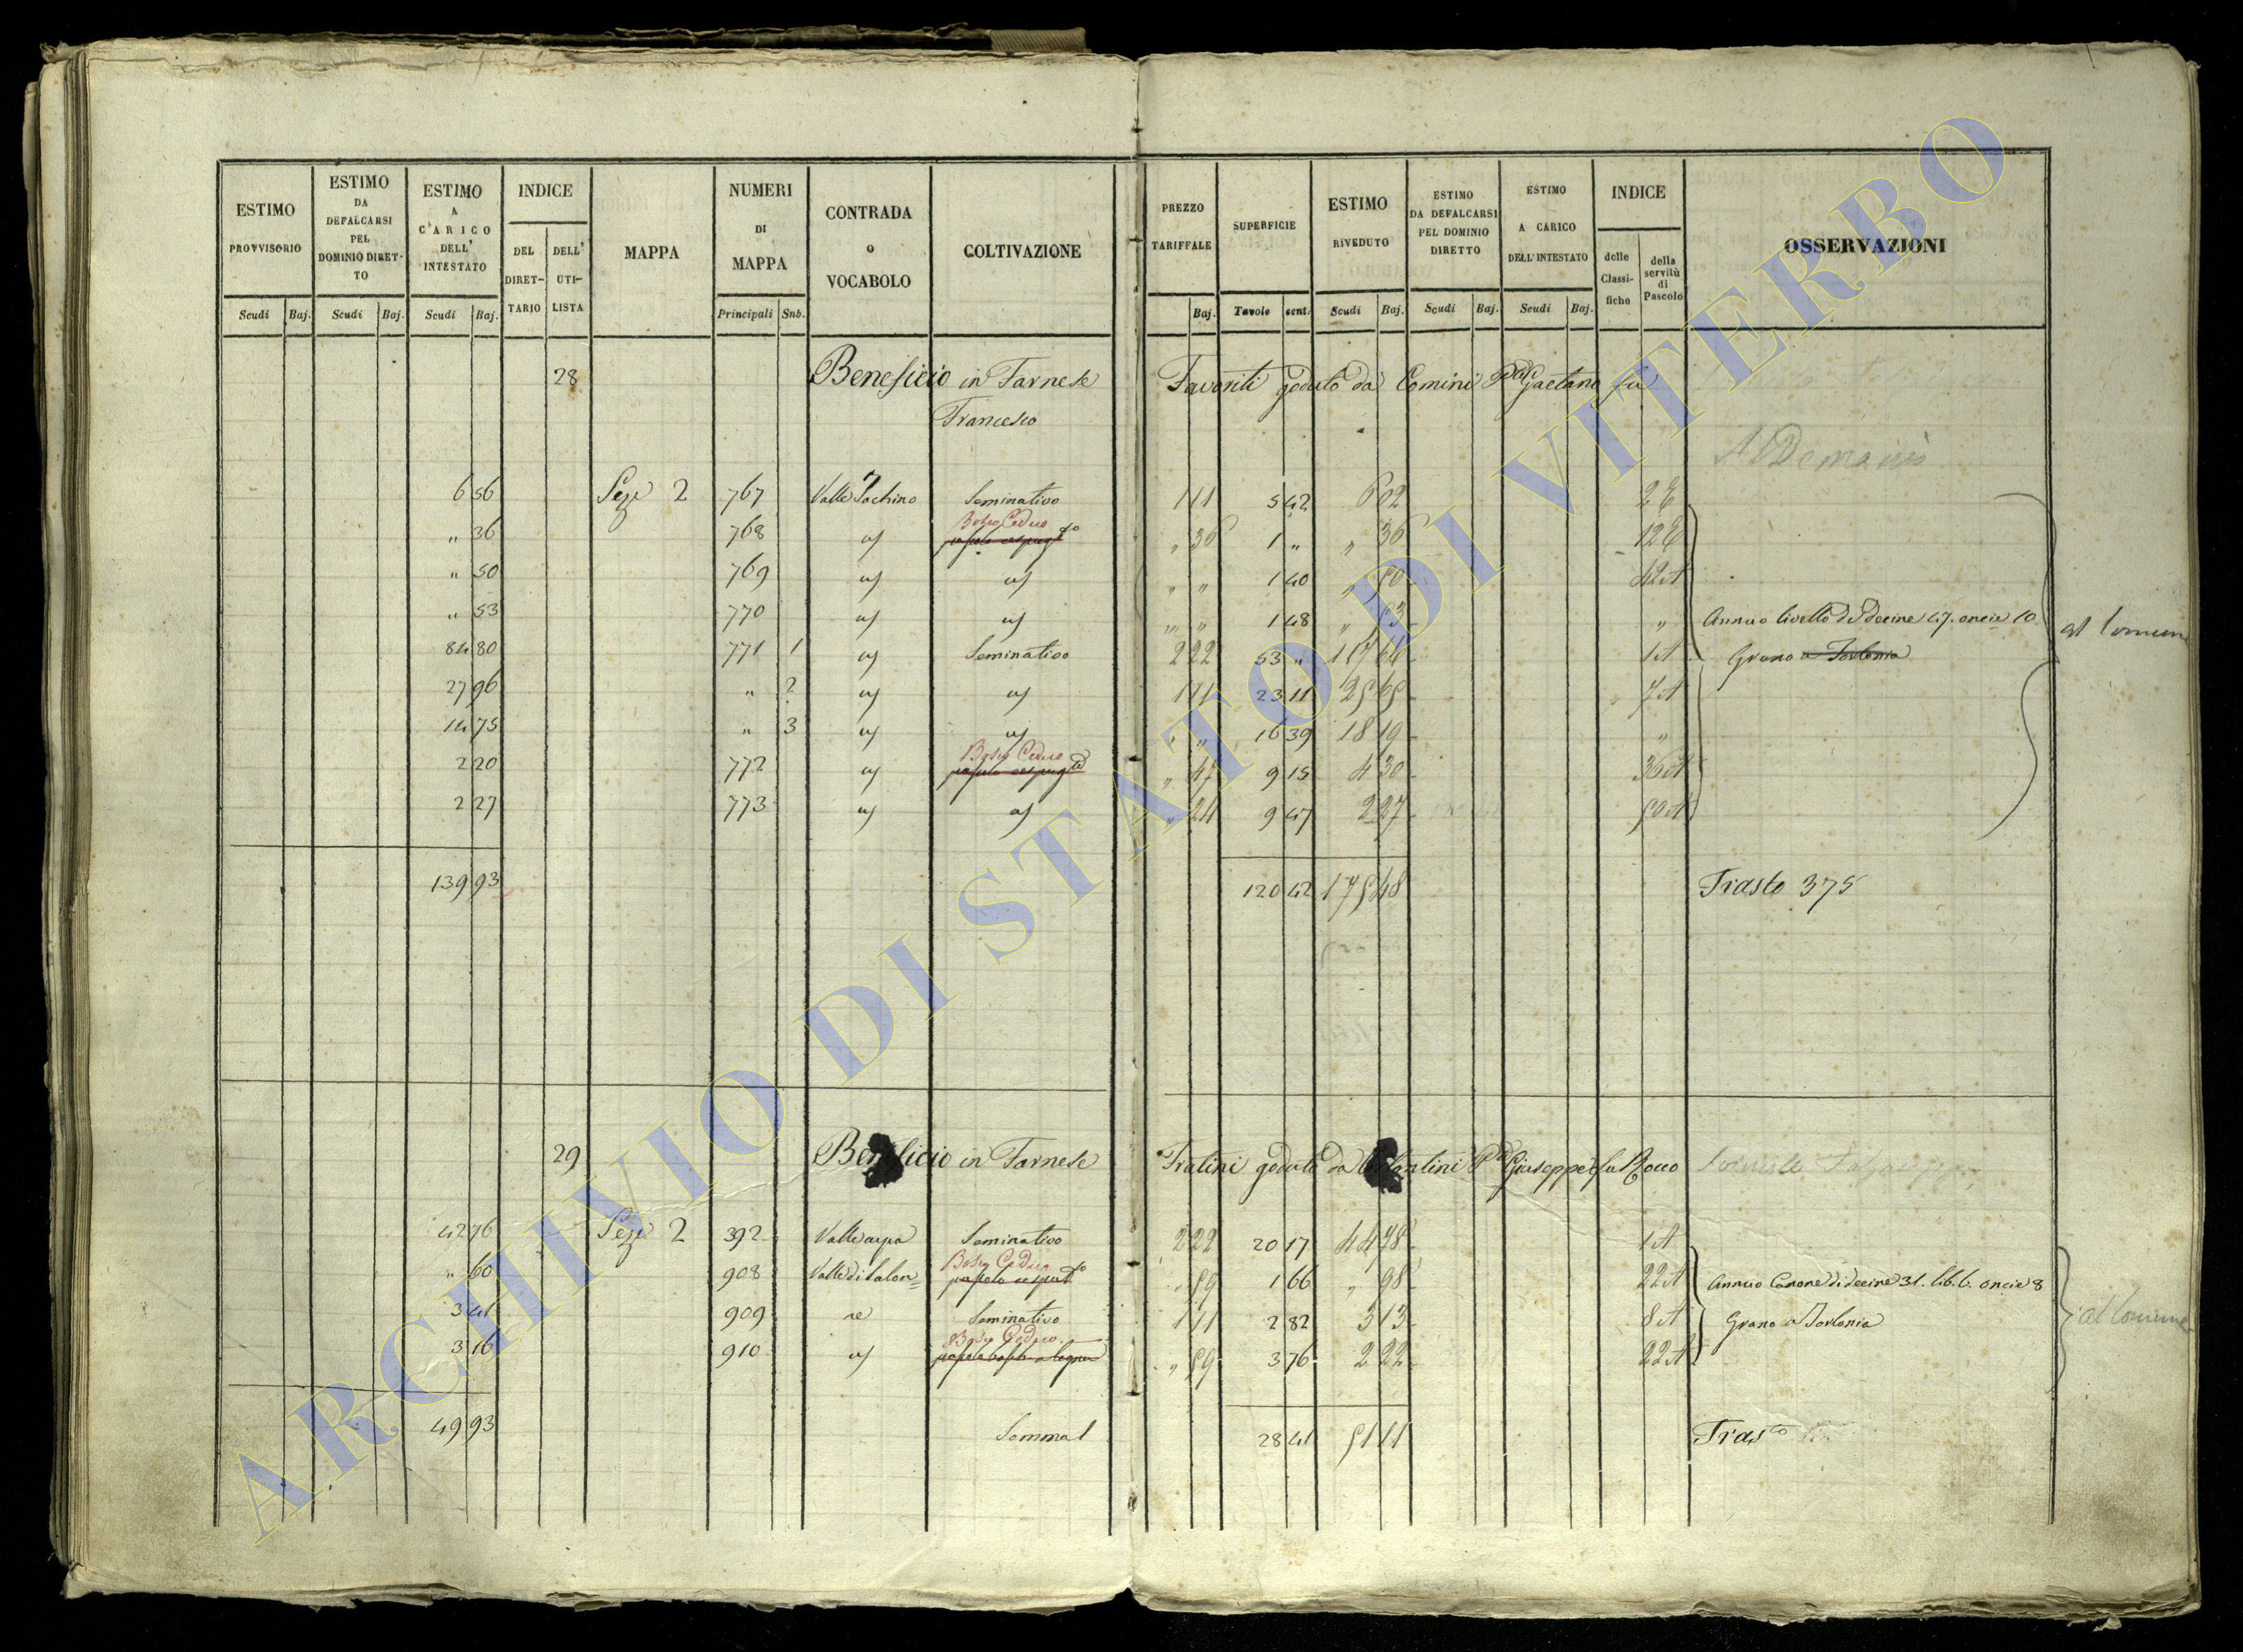 ESTIMO PROVVISORIO Scudi Baj.
ESTIMO DA DEFALCARSI PEL DOMINIO DIRET-TO Scudi Baj.
ESTIMO A CARICO DELL' INTESTATO Scudi Baj.
INDICE DEL DIRET-TARIO DELL' UTI-LISTA
MAPPA
NUMERI DI MAPPA Principali Sub.
CONTRADA O VOCABOLO
COLTIVAZIONE
PREZZO TARIFFALE Baj.
SUPERFICIE Tavole cent.
ESTIMO RIVEDUTO Scudi Baj.
ESTIMO DA DEFALCARSI PEL DOMINIO DIRETTO Scudi Baj.
ESTIMO A CARICO DELL'INTESTATO Scudi Baj.
INDICE delle Classi-fiche della servitù di Pascolo
OSSERVAZIONI
28 Beneficio in Farnese Favoriti goduto da Comini Gaetano fu
Francesco
Al Demanio
6 56 Seze 2 767 Valle Seminativo 1 11 5 42 6 02 2
" 36 768 Bosco Ceduo " 36 1 " " 36 12
" 50 769 " " 1 40 " 50 42 A
" 53 770 " " 1 48 " 53 " Annuo livello di decine 47. oncie 10
84 80 771 1 Seminativo 2 22 53 " 117 66 1 A Grano a Torlonia
al Comune
27 96 " 2 1 11 23 11 25 65 7 A
14 75 " 3 " " 16 39 18 19 "
2 20 772 Bosco Ceduo " 47 9 15 4 30 36 A
2 27 773 " 24 9 47 2 27 50 A
139 93 120 42 175 48 Trasto 375
29 Beneficio in Farnese Fratini goduto da Giuseppe fu Rocco
42 76 Seze 2 392 Seminativo 2 22 20 17 44 78 1 A
" 60 908 Bosco Ceduo " 59 1 66 " 98 22 A Annuo Canone di decine 31. lib. 6. oncie 8
3 41 909 Seminativo 1 11 2 82 3 13 8 A Grano a Torlonia
al Comune
3 16 910 Bosco Ceduo " 59 3 76 2 22 22 A
49 93 Somma 28 41 51 11 Trasto
ARCHIVIO DI STATO DI VITERBO